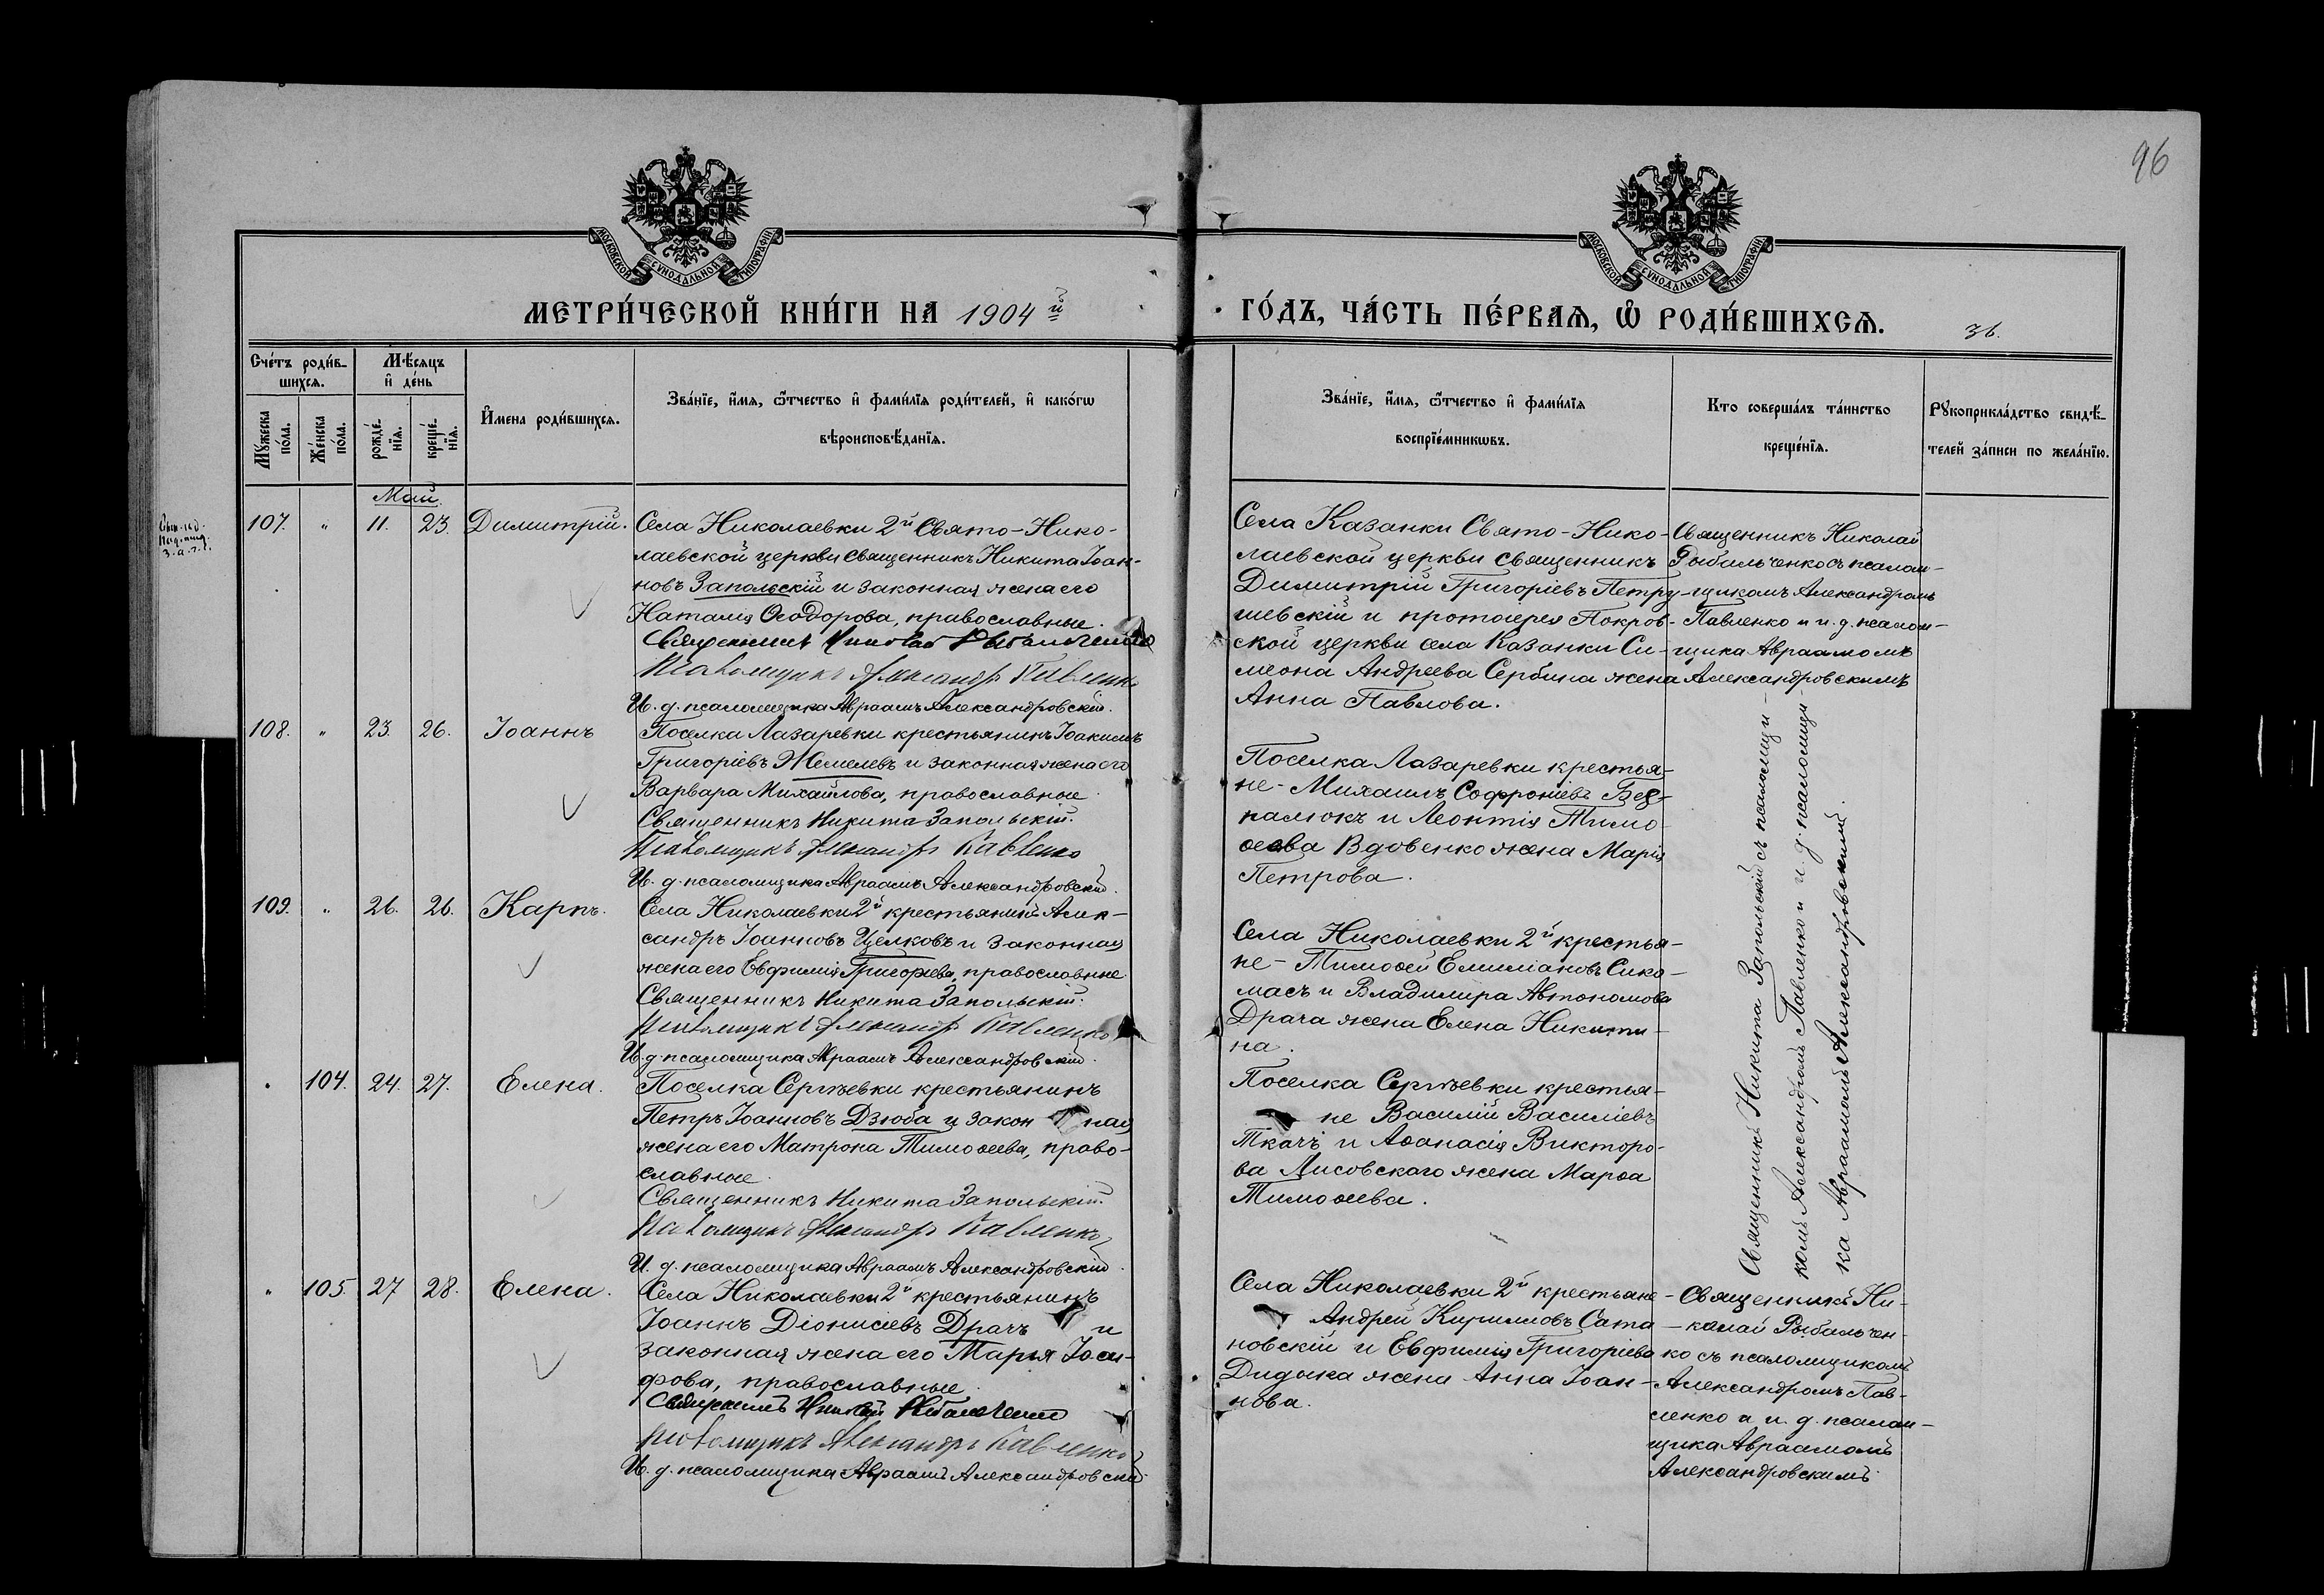 96
МОСКОВСКОЙ СѴНОДАЛЬНОЙ ТИПОГРАФІИ
МОСКОВСКОЙ СѴНОДАЛЬНОЙ ТИПОГРАФІИ
МЕТРИ́ЧЕСКОЙ КНИ́ГИ НА 1904й
ГО́ДЪ, ЧА́СТЬ ПЕ́РВАѦ, Ѽ РОДИ́ВШИХСѦ.
36.
Сче́тъ роди́в-
шихсѧ.
Мѣ́сѧцъ
и҆ де́нь
Мꙋ́жеска
по́ла.
Же́нска
по́ла.
рожде́-
нїѧ.
креще́-
нїѧ.
И҆мена роди́вшихсѧ.
Зва́нїе, и҆́мѧ, ѻ҆́тчество и҆ фами́лїѧ роди́телей, и҆ како́гѡ
вѣроисповѣ́данїѧ.
Зва́нїе, и҆́мѧ, ѻ҆́тчество и҆ фами́лїѧ
воспрїе́мникѡвъ.
Кто соверша́лъ та́инство
креще́нїѧ.
Рꙋкоприкла́дство свидѣ́-
телей за́писи по жела́нїю.
Май.
107. " 11. 23. Димитрій.
Села Николаевки 2й Свято-Нико-
лаевской церкви священникъ Никита Іоан-
новъ Запольскій и законная жена его
Наталія Ѳеодорова, православные.
Священникъ Николай Рыбальченко
Псаломщикъ Александръ Павленко
И. д. псаломщика Авраамъ Александровскій.
Села Казанки Свято-Нико-
лаевской церкви священникъ
Димитрій Григоріевъ Петру-
шевскій и протоіерея Покров-
ской церкви села Казанки Си-
меона Андреева Сербина жена
Анна Павлова.
Священникъ Николай
Рыбальченко съ псалом-
щикомъ Александромъ
Павленко и и. д. псалом-
щика Авраамомъ
Александровскимъ
108. " 23. 26. Іоаннъ
Поселка Лазаревки крестьянинъ Іоакимъ
Григоріевъ Жемелевъ и законная жена его
Варвара Михайлова, православные.
Священникъ Никита Запольскій.
Псаломщикъ Александръ Павленко
И. д. псаломщика Авраамъ Александровскій.
Поселка Лазаревки крестья-
не - Михаилъ Софроніевъ Без-
палюкъ и Леонтія Тимо-
ѳеева Вдовенко жена Марія
Петрова.
Священникъ Никита Запольскій съ псаломщи-
комъ Александромъ Павленко и и. д. псаломщи-
ка Авраамомъ Александровскимъ.
109. " 26. 26. Карпъ.
Села Николаевки 2й крестьянинъ Алек-
сандръ Іоанновъ Щелковъ и законная
жена его Евфимія Григорьева, православные.
Священникъ Никита Запольскій.
Псаломщикъ Александръ Павленко
И. д. псаломщика Авраамъ Александровскій.
Села Николаевки 2й крестья-
не - Тимоѳей Емиліановъ Сико-
масъ и Владимира Автономова
Драча жена Елена Никити-
на.
" 104. 24. 27. Елена.
Поселка Сергѣевки крестьянинъ
Петръ Іоанновъ Дзюба и закон ная
жена его Матрона Тимоѳеева, право-
славные.
Священникъ Никита Запольскій.
Псаломщикъ Александръ Павленко
И. д. псаломщика Авраамъ Александровскій.
Поселка Сергѣевки крестья-
не Василій Василіевъ
Ткачъ и Аѳанасія Викторо-
ва Лисовскаго жена Марѳа
Тимоѳеева.
" 105. 27 28. Елена.
Села Николаевки 2й крестьянинъ
Іоаннъ Діонисіевъ Драчъ и
законная жена его Марья Іоси-
фова, православные.
Священникъ Николай Рыбальченко
Псаломщикъ Александръ Павленко
И. д. псаломщика Авраамъ Александровскій.
Села Николаевки 2й крестьяне -
Андрей Кирилловъ Сата-
новскій и Евфимія Григоріева
Дидыка жена Анна Іоан-
нова.
Священникъ Ни-
колай Рыбальчен-
ко съ псаломщикомъ
Александромъ Пав-
ленко и и. д. псалом-
щика Авраамомъ
Александровскимъ.